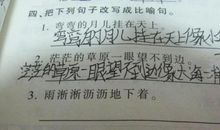 四、把下列句子改写成比喻句。
1. 弯弯的月儿挂在天上。
弯弯的月儿挂在天上像
2. 茫茫的草原一眼望不到边。
茫茫的草原一眼望不到边像大海一样
3. 雨淅淅沥沥地下着。